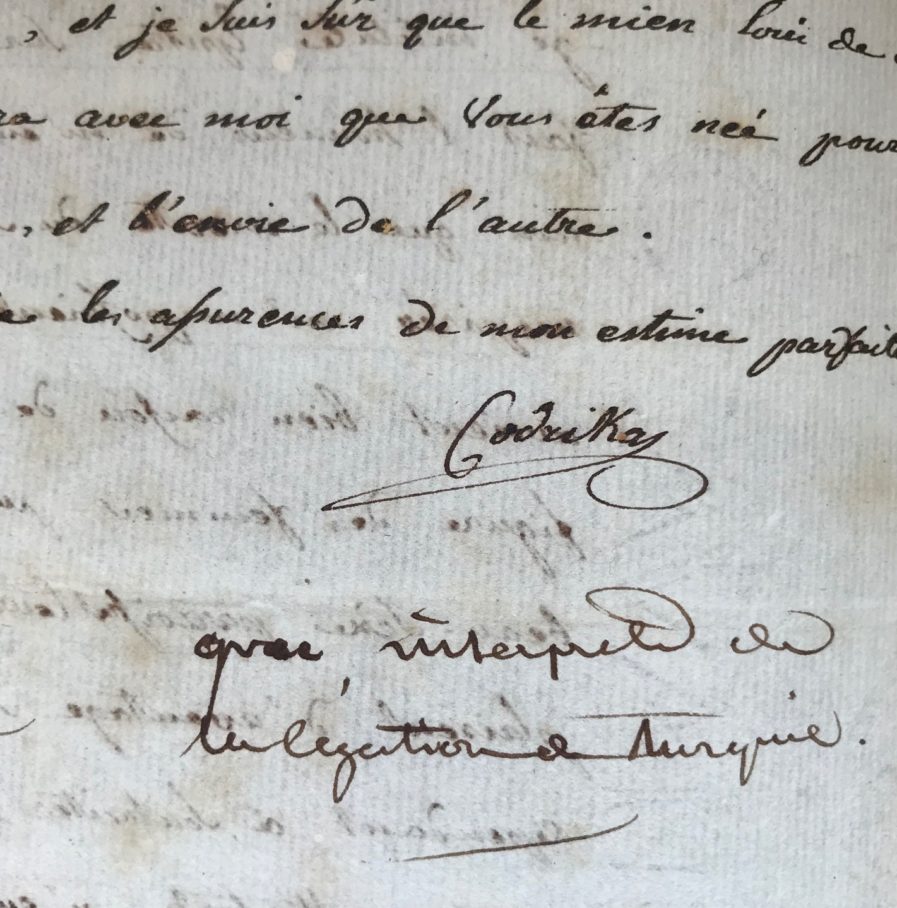 , et je suis sûr que le mien loin de
ra avec moi que Vous étes neé pour
, et l'envie de l'autre.
les assurences de mon estime parfaite
Codrika
grec, interprete de
la légation de Turquie.